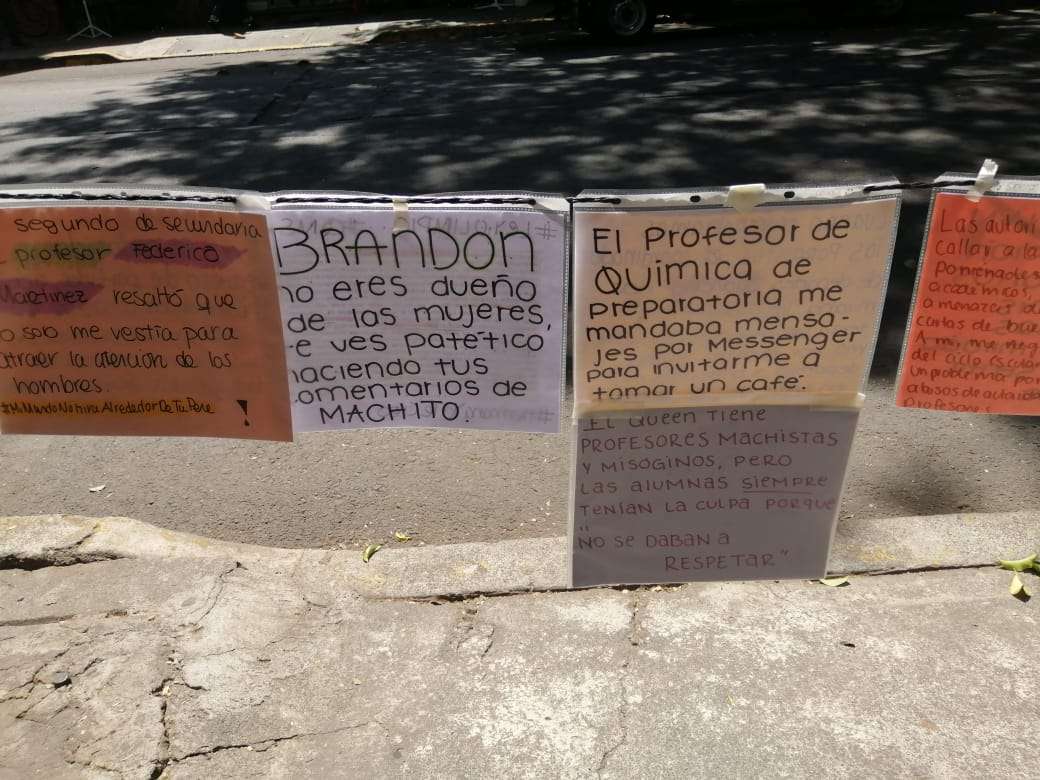 segundo de secundaria
profesor Federico
Martinez resaltó que
solo me vestia para
atraer la atención de los
hombres.
#MiMundoNoGiraAlrededorDeTuPene !
BRANDON
no eres dueño
de las mujeres,
te ves patético
haciendo tus
comentarios de
MACHITO.
El Profesor de
QUIMICA de
PREPARATORIA me
mandaba mensa-
jes por Messenger
para invitarme a
tomar un café.
EL QUEEN TIENE
PROFESORES MACHISTAS
Y MISOGINOS, PERO
LAS ALUMNAS SIEMPRE
TENIAN LA CULPA PORQUE
"
NO SE DABAN A
RESPETAR"
Las autori
callar a la
académicos,
amenazas de
cartas de
A mi me neg
del ciclo escolar
un problema por
abusos de
Profesores